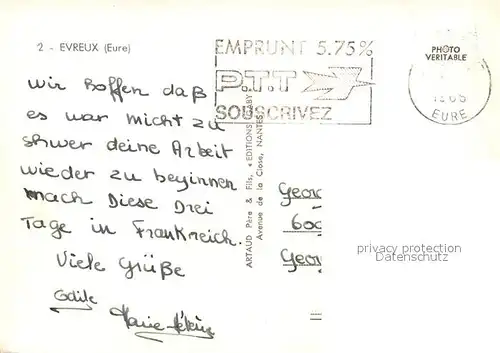 2 - EVREUX (Eure)
EMPRUNT 5.75%
P.T.T
SOUSCRIVEZ
PHOTO
VERITABLE
EURE
wir hoffen daß
es war nicht zu
shwer deine Arbeit
wieder zu beginnen
nach Diese Drei
Tage in Frankreich.
Viele Grüße
Odile
Marie-Hélène
ARTAUD Père & Fils, «EDITIONS GABY»
Avenue de la Close, NANTES
Georg
600
Georg
privacy protection
Datenschutz